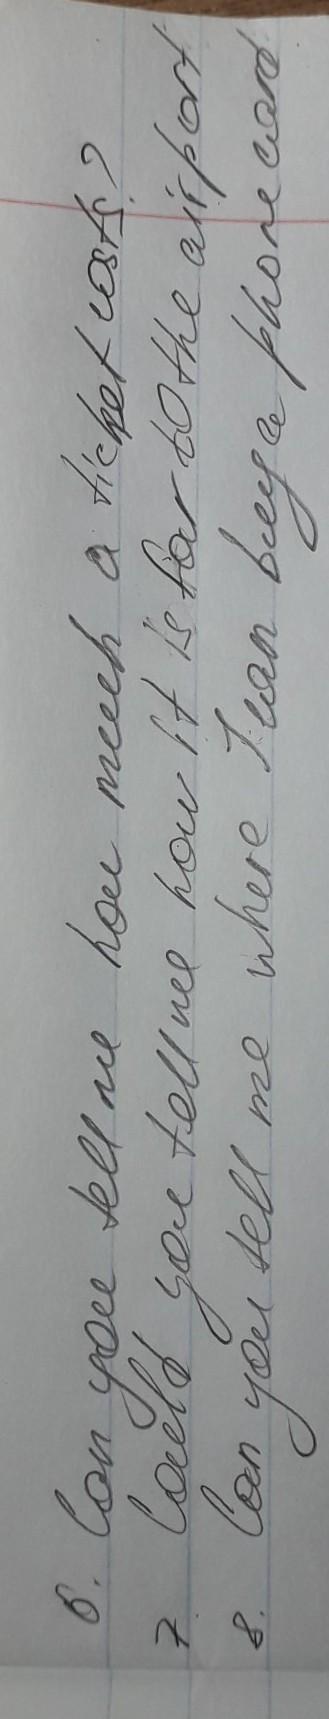 6. Can you tell me how much a ticket costs?
7. Could you tell me how it is far to the airport
8. Can you tell me where I can buy a phone card